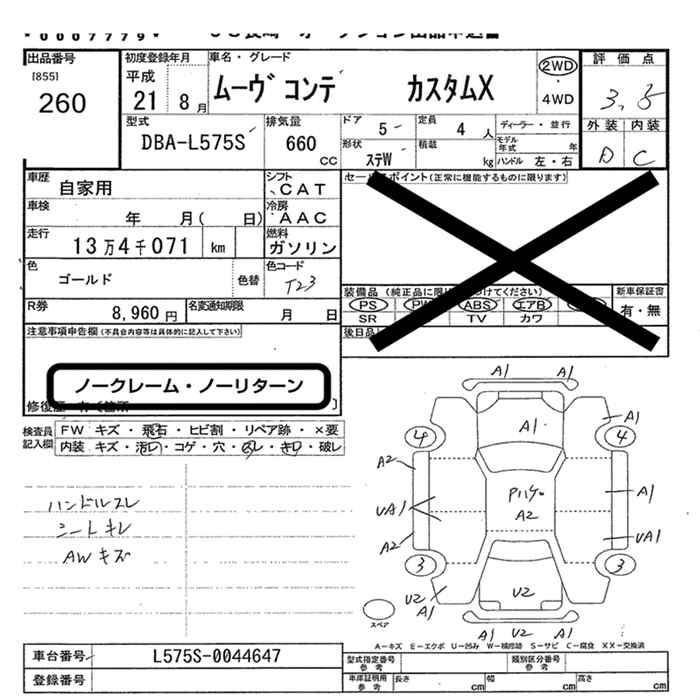 出品番号
[855]
260
初度登録年月
平成
21年 8月
車名・グレード
ムーヴ コンテ カスタムX
2WD
4WD
評価点
3.5
外装 内装
D C
型式
DBA-L575S
排気量
660
CC
ドア
5
定員
4 人
ディーラー・並行
モデル年式 年
形状
ステW
積載
kg
ハンドル 左・右
車歴
自家用
シフト
CAT
車検
年 月( 日)
冷房
AAC
走行
13万4千071 km
燃料
ガソリン
色
ゴールド
色替
色コード
T23
R券
8,960円
名変通知期限
月 日
セールスポイント(正常に機能するものに限ります)
新車保証書
有・無
PS ABS エアB
SR TV カワ
後日品
注意事項申告欄(不具合内容等は具体的に記入して下さい)
ノークレーム・ノーリターン
検査員記入欄
FW キズ・飛石・ヒビ割・リペア跡・×要
内装 キズ・汚れ・コゲ・穴・スレ・キレ・破レ
ハンドルスレ
シートキレ
AWキズ
A1
A1 A1
4 4
A2
Pハゲ
A2 A1
UA1
A2 UA1
3 3
U2 A1
U2
A1 U2 A1
スペア
A-キズ E-エクボ U-凹み W-補修跡 S-サビ C-腐食 XX-交換済
車台番号
L575S-0044647
登録番号
型式指定番号
参考
類別区分番号
参考
車庫証明用
参考
長さ cm
幅 cm
高さ cm